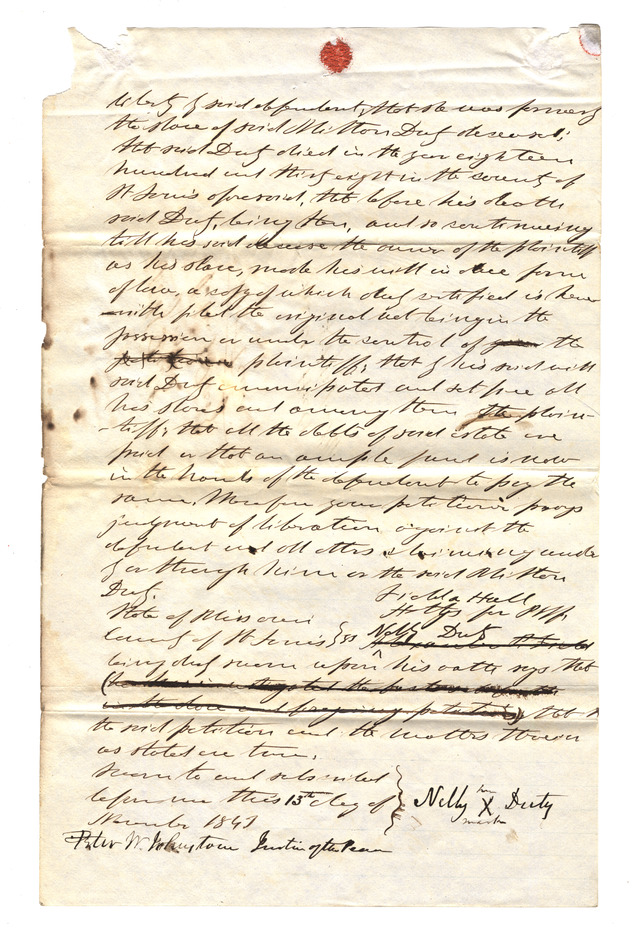 liberty of said defendant, that she was formerly
the slave of said Milton Duty deceased;
that said Duty died in the year eighteen
hundred and thirty eight in the county of
St Louis aforesaid, that before his death
said Duty, being then, and so continuing
till his said decease the owner of the plaintiff
as his slave, made his will in due form
of law, a copy of which duly certified is here
with filed the original not being in the
possession or under the control of the
plaintiff; that by his said will
said Duty emancipated and set free all
his slaves and among them the plain-
tiff; that all the debts of said estate are
paid or that an ample fund is now
in the hands of the defendant to pay the
same. Wherefore your petitioner prays
judgment of liberation against the
defendant and all others claiming under
by or through him or the said Milton
Duty.
Field & Hall
Attys for Plff
State of Missouri
County of St Louis } ss Nelly Duty Alexander P. Field
being duly sworn upon his oath says that
in the above and foregoing petition) that
the said petition and the matters therein
as stated are true.
Sworn to and subscribed
before me this 13th day of
November 1843
Nelly her X mark Duty
Peter W. Johnstone Justice of the Peace